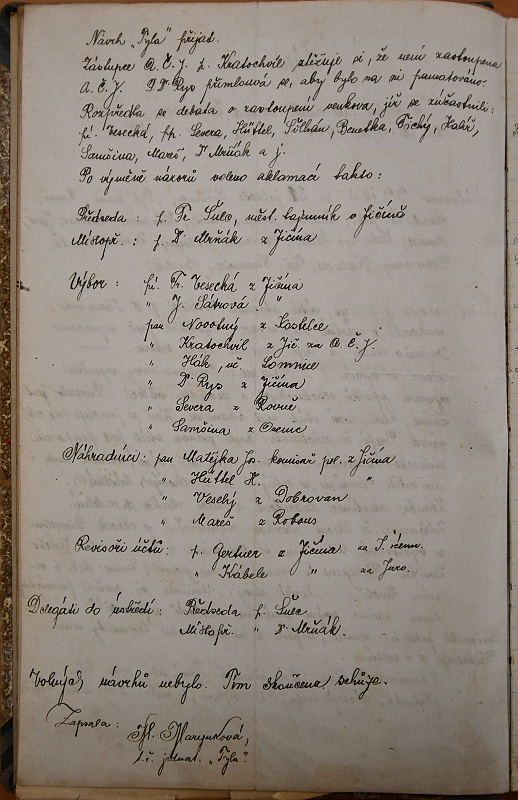 Návrh „Tyla" přijat.
Zástupce A.Č.J. p. Kratochvíl stěžuje si, že není zastoupena
A.Č.J. p. Dr Rys přimlouvá se, aby bylo na ni pamatováno.
Rozpředla se debata o zastoupení venkova, jíž se zúčastnili:
sl. Veselá, pp. Severa, Hüttel, Benetka, Tichý,
Samšina, Mareš, Dr Mrňák a j.
Po výměně názorů voleno aklamací takto:
Předseda: p. Fr. Šulc, měst. tajemník v Jičíně
Místopř.: p. Dr Mrňák z Jičína
Výbor: Fr. z Jičína
" J. Šátrová "
pan Novotný z Kostelce
" Kratochvíl z Jič. za A.Č.J
" Hák, uč. Lomnice
" Dr Rys z Jičína
" Severa z Rovně
" Samšina z
Náhradníci: pan Matějka Jos. komisař pol. z Jičína
" Hüttel K. "
" Veselý z Dobrovan
" Mareš z Robous
Revisoři účtů: p. Gertner z Jičína za
" Kábele " za
Delegáti do ústředí: Předseda p. Šulc
Místopř. " Dr Mrňák.
Volných návrhů nebylo. Tím skončena schůze.
Zapsala:
Ml. Marynková,
t.č. jednat. „Tyla".